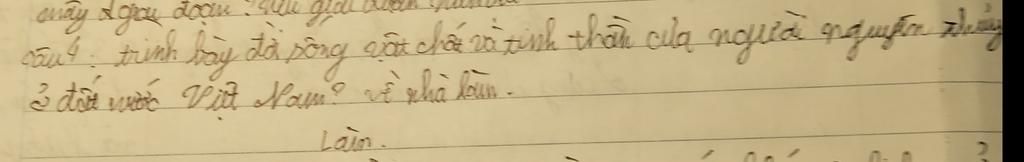 mấy giai đoạn?
câu 4: trình bày đời sống vật chất và tinh thần của người nguyên thủy
ở đất nước Việt Nam? về nhà làm.
Làm.